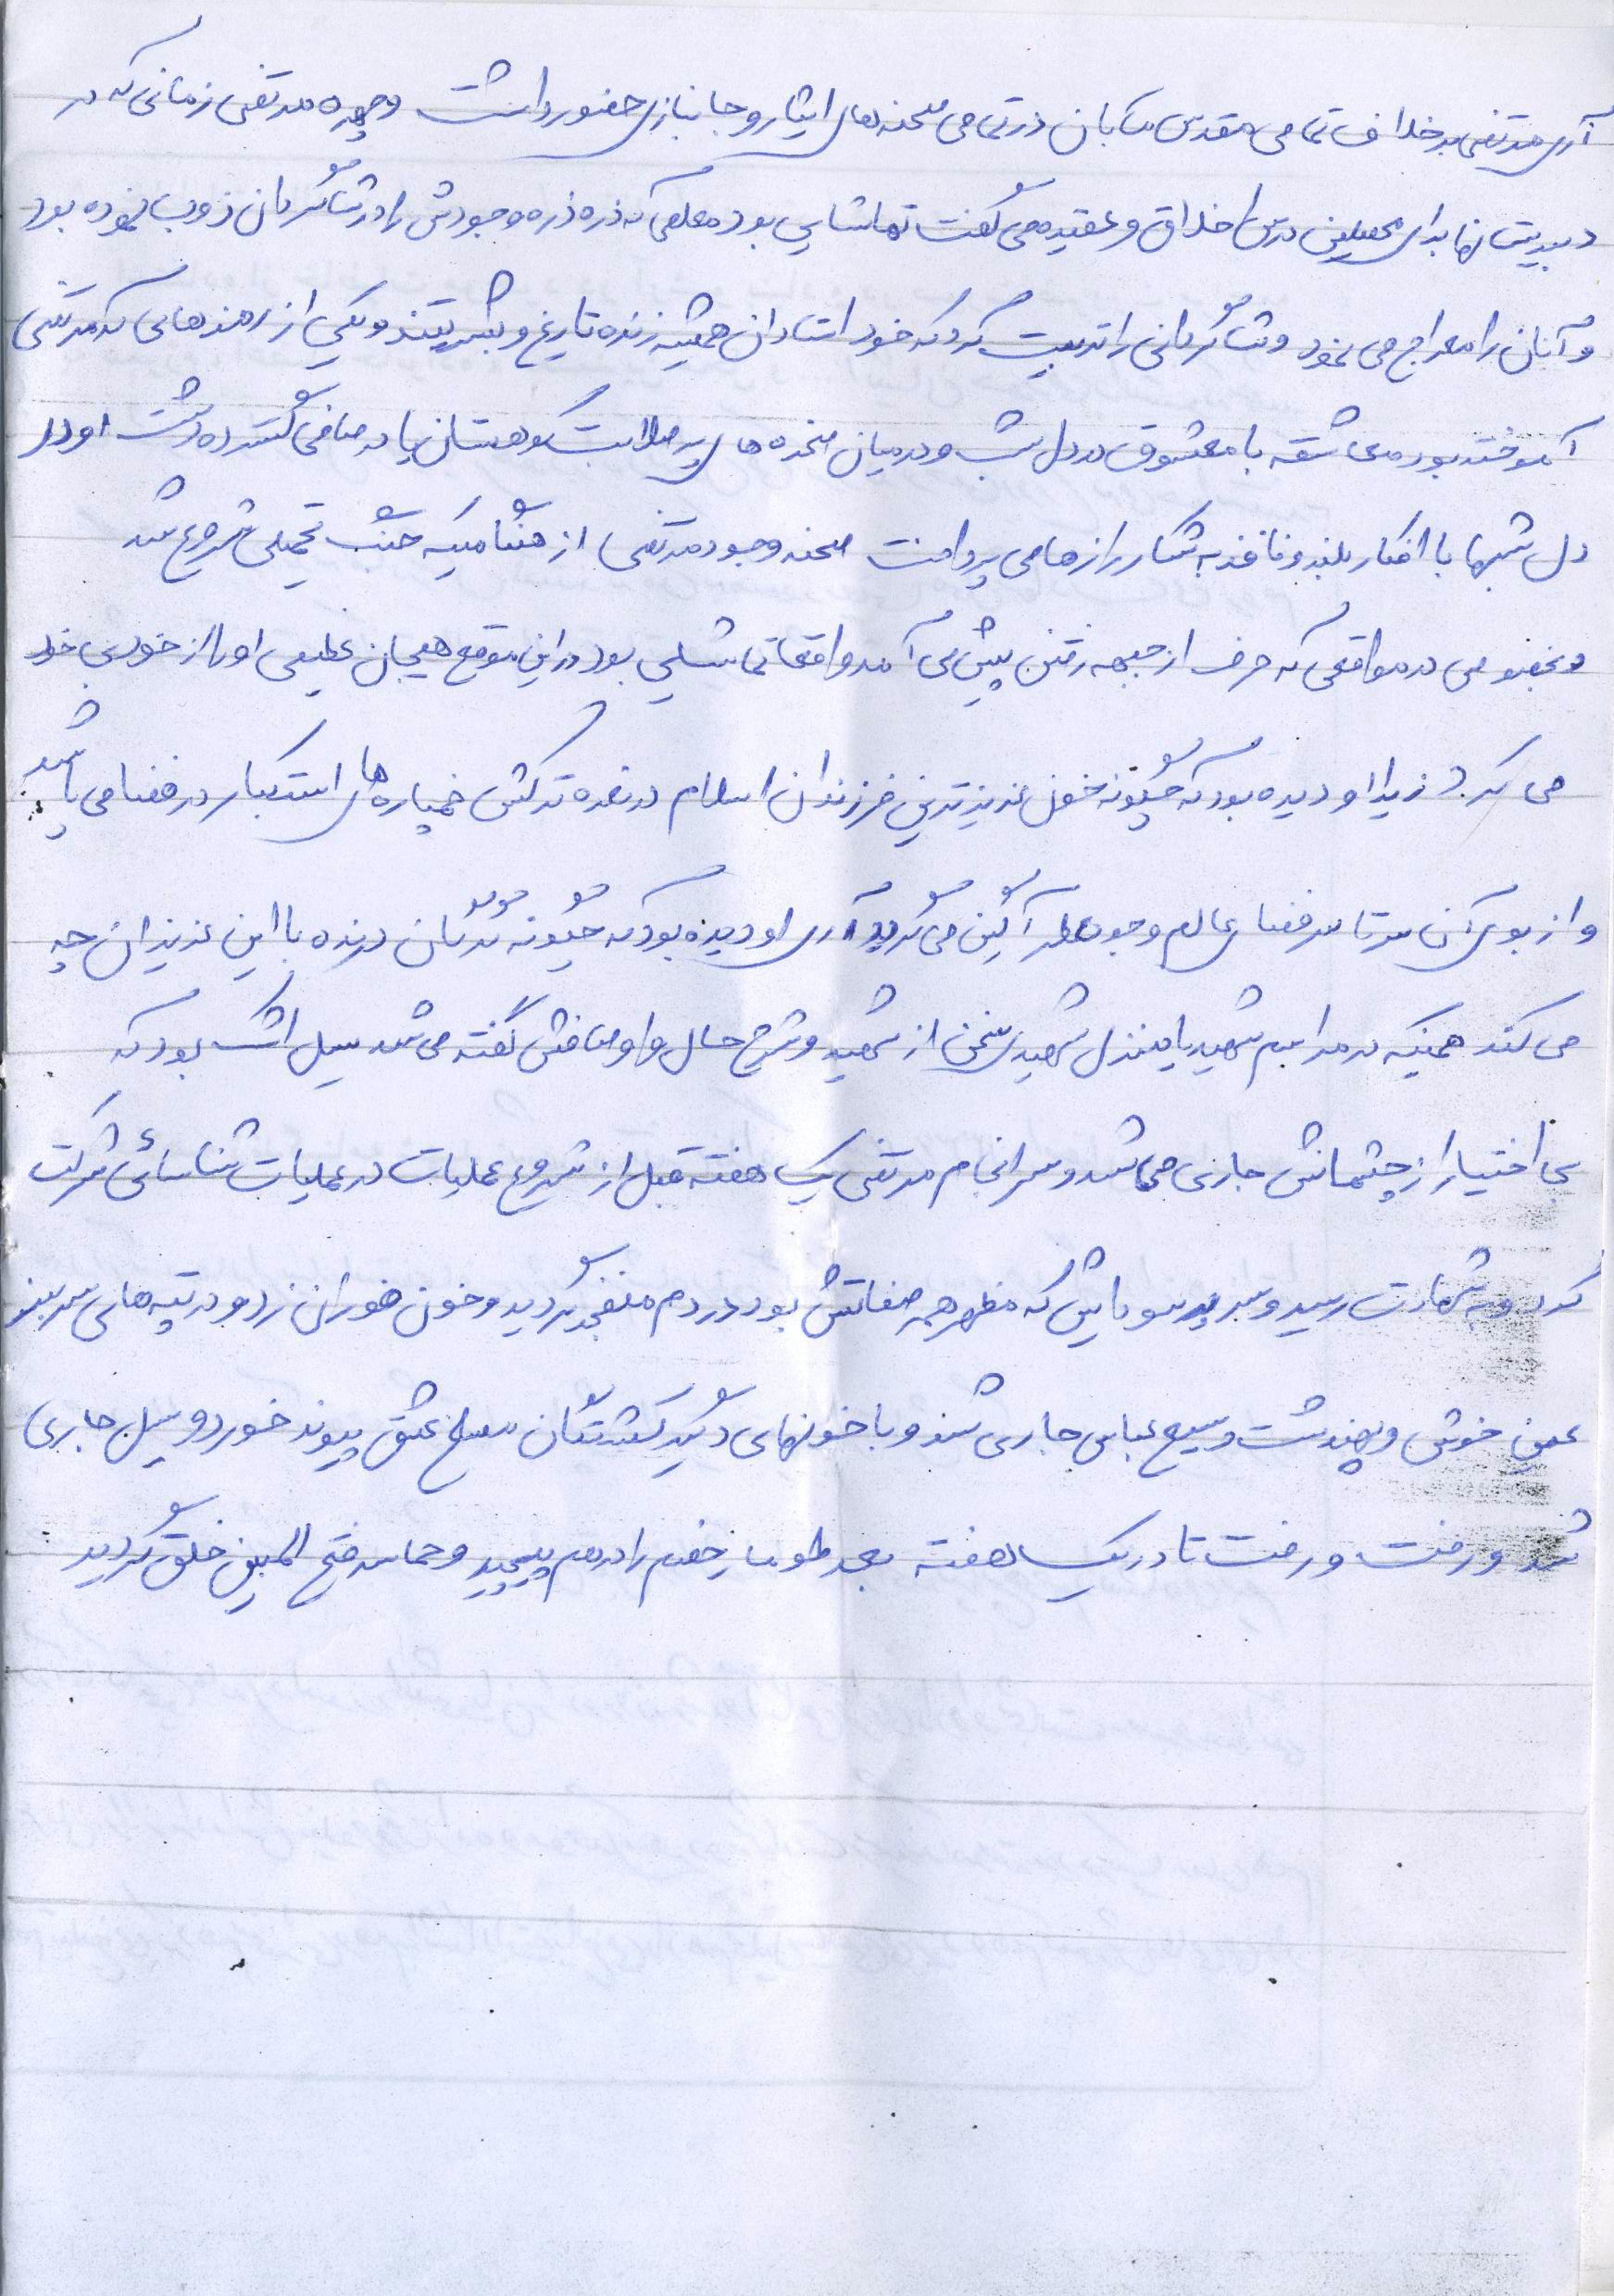 آری مرتضی برخلاف تمامی مقدس مآبان در تمامی صحنه‌های ایثار و جانبازی حضور داشت و چهره مرتضی زمانی که در
دبیرستانها برای محصلین درس اخلاق و عقیده می گفت تماشایی بود معلمی که ذره ذره وجودش را در شاگردان ذوب نموده بود
و آنان را معراج می نمود و شاگردانی را تربیت کرد که خود استادان همیشه زنده تاریخ و بشریتند و یکی از رمزهایی که مرتضی
آموخته بود معاشقه با معشوق در دل شب و در میان صخره های پر صلابت کوهستان یا در صافی گسترده دشت او در
دل شبها با افکار بلند و نافذ به شکار رازها می پرداخت صحنه وجود مرتضی از هنگامیکه جنگ تحمیلی شروع شد
و بخصوص در مواقعی که حرف از جبهه رفتن پیش می آمد واقعا تماشایی بود در این موقع هیجان عظیمی او را از خود بی خود
می کرد زیرا او دیده بود که چگونه عزیزترین فرزندان اسلام در نعره ترکش خمپاره های استکبار در فضا می پاشید
و از بوی آن سرتاسر فضای عالم وجود عطر آگین می گردید آری او دیده بود که چگونه گرگان درنده با این عزیزان چه
می کنند همینکه در مراسم شهید یا منزل شهید سخن از شهید و شرح حال و اوصافش گفته می شد سیل اشک بود که
بی اختیار از چشمانش جاری می شد و سرانجام مرتضی یک هفته قبل از شروع عملیات در عملیات شناسائی شرکت
کرد و به شهادت رسید و سر پر سودایش که مظهر همه صفاتش بود در دم منفجر گردید و خون فورانی زد و در تپه های سرسبز
عین خوش و پهندشت وسیع عباس جاری شد و با خونهای دیگر کشتگان مسلخ عشق پیوند خورد و سیل جاری
شد و رفت و رفت تا در یک هفته بعد طومار خصم را در هم پیچید و حماسه فتح المبین خلق گردید